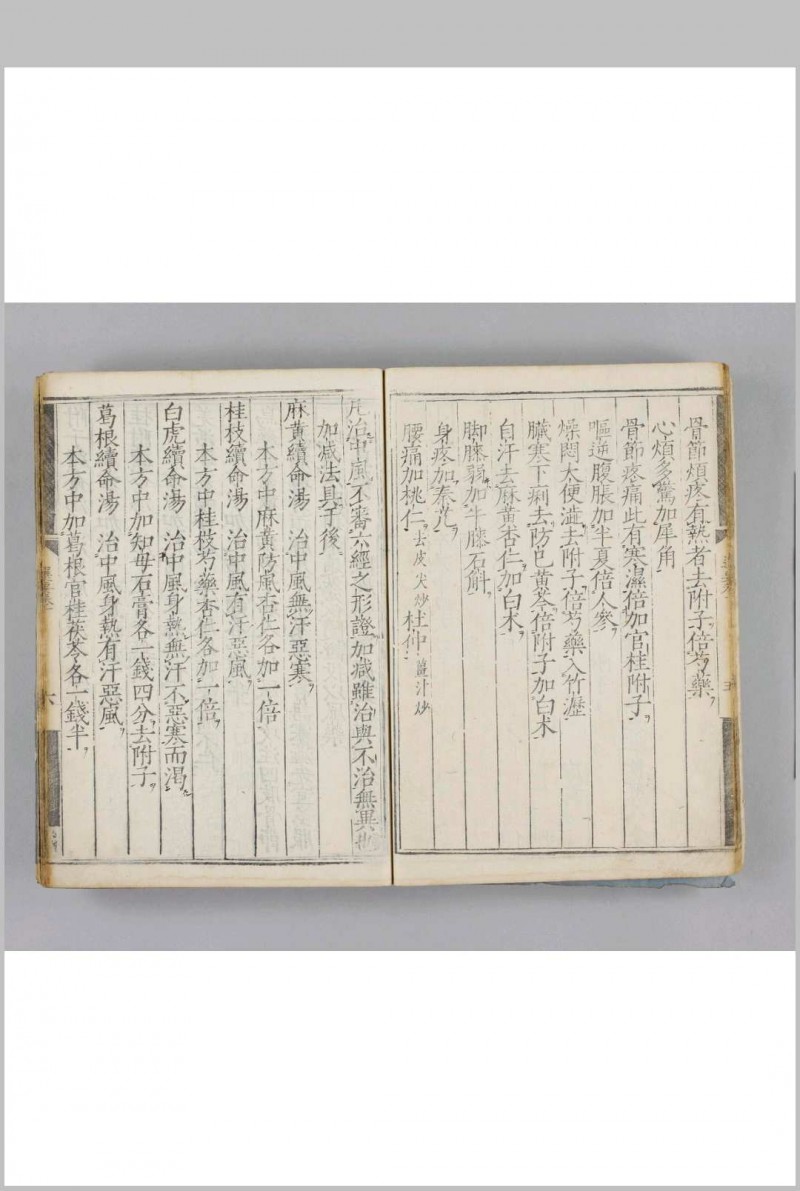 骨節煩疼有熱者去附子倍芍藥
心煩多驚加犀角
骨節疼痛此有寒濕倍加官桂附子
嘔逆腹脹加半夏倍人參
燥悶大便澁去附子倍芍藥入竹瀝
臟寒下痢去防巴黃芩倍附子加白术
自汗去麻黃杏仁加白术
脚膝弱加牛膝石斛
身疼加秦芃
腰痛加桃仁去皮尖炒杜仲薑汁炒
五
凡治中風不審六經之形證加减雖治與不治無異也
加减法具于後
麻黃續命湯 治中風無汗惡寒
本方中麻黃防風杏仁各加一倍
桂枝續命湯 治中風有汗惡風
本方中桂枝芍藥杏仁各加一倍
白虎續命湯 治中風身熱無汗不惡寒而渴
本方中加知母石膏各一錢四分去附子
葛根續命湯 治中風身熱有汗惡風
本方中加葛根官桂茯苓各一錢半
六